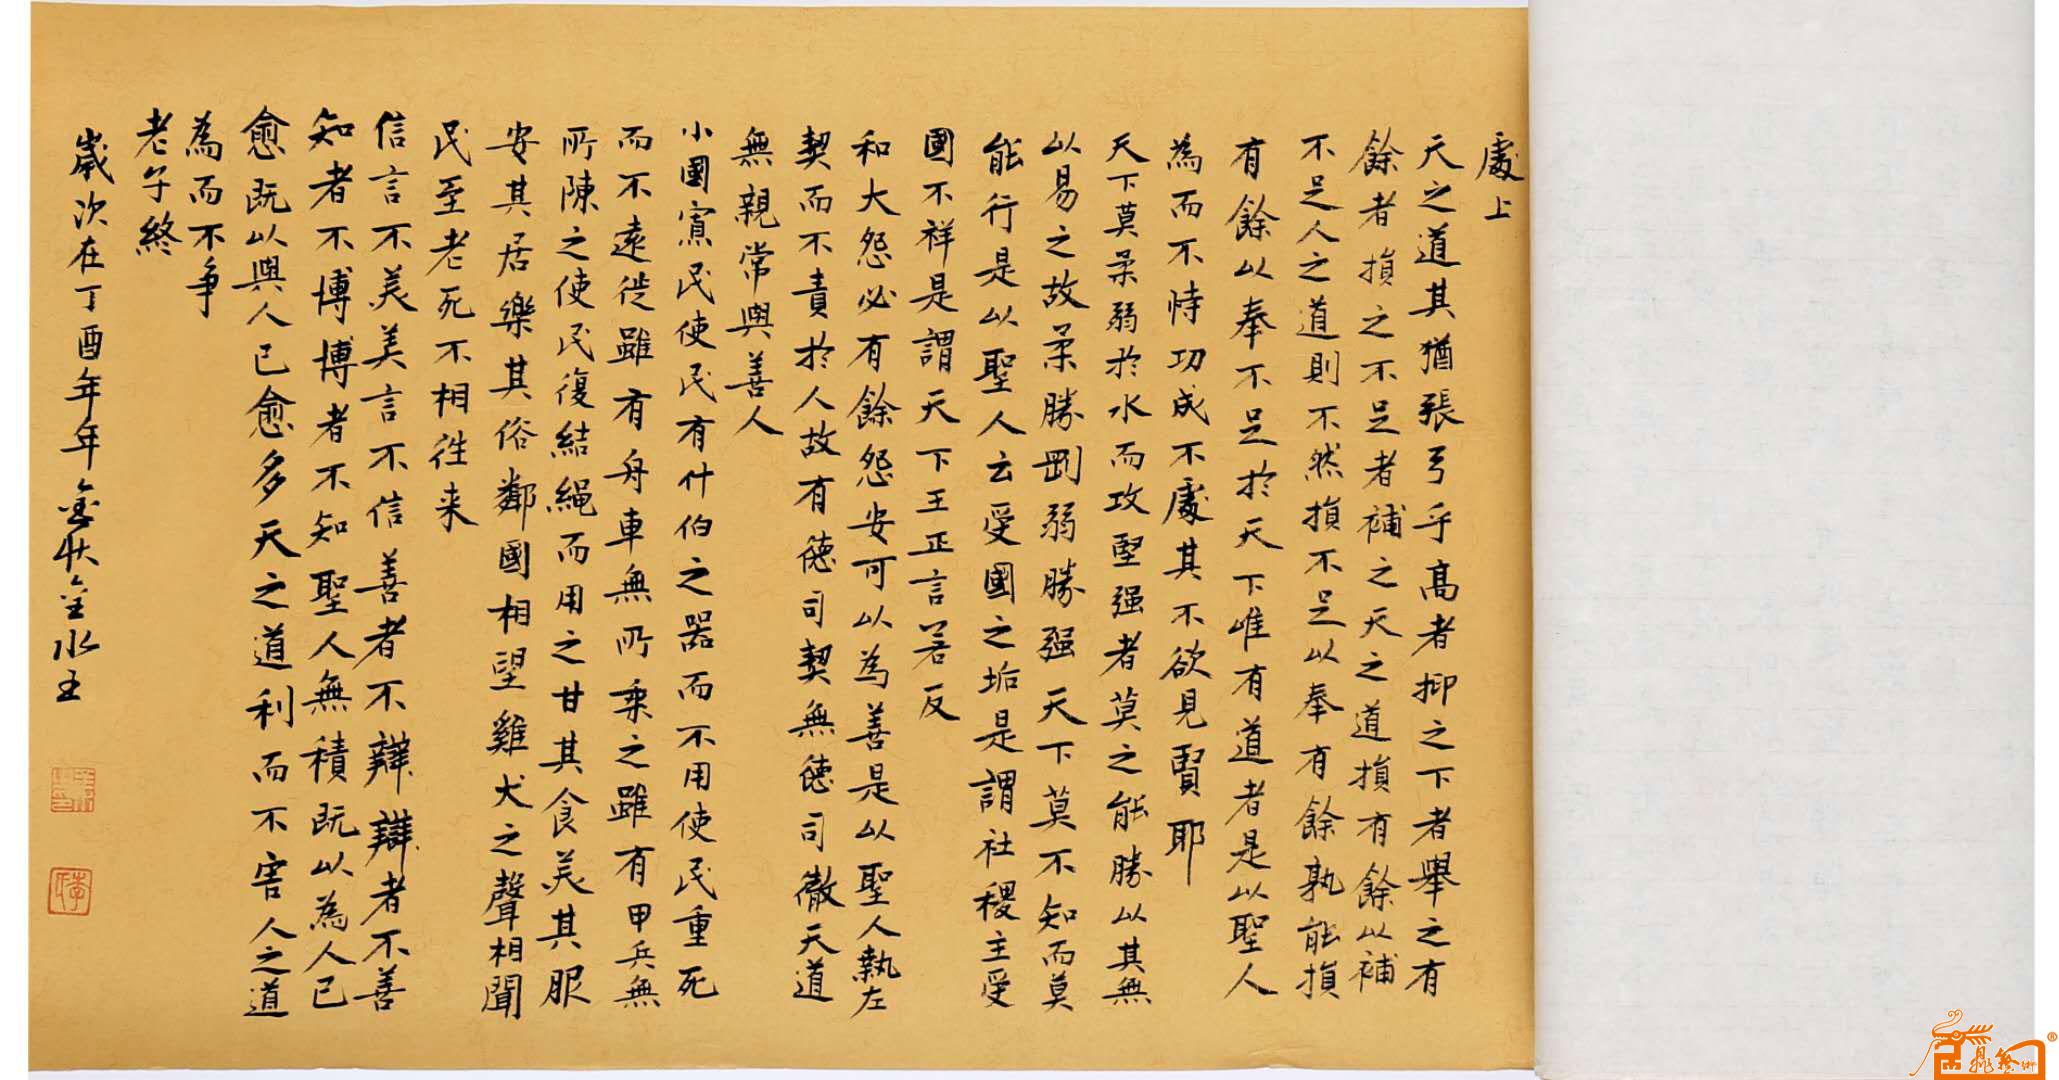 處上
天之道其猶張弓乎高者抑之下者舉之有
餘者損之不足者補之天之道損有餘以補
不足人之道則不然損不足以奉有餘孰能損
有餘以奉不足於天下唯有道者是以聖人
為而不恃功成不處其不欲見賢耶
天下莫柔弱於水而攻堅强者莫之能勝以其無
以易之故柔勝剛弱勝强天下莫不知而莫
能行是以聖人云受國之垢是謂社稷主受
國不祥是謂天下王正言若反
和大怨必有餘怨安可以為善是以聖人執左
契而不責於人故有德司契無德司徹天道
無親常與善人
小國寡民使民有什伯之器而不用使民重死
而不遠徙雖有舟車無所乘之雖有甲兵無
所陳之使民復結繩而用之甘其食美其服
安其居樂其俗鄰國相望雞犬之聲相聞
民至老死不相往来
信言不美美言不信善者不辯辯者不善
知者不博博者不知聖人無積既以為人已
愈既以與人已愈多天之道利而不害人之道
為而不争
老子終
歲次在丁酉年年